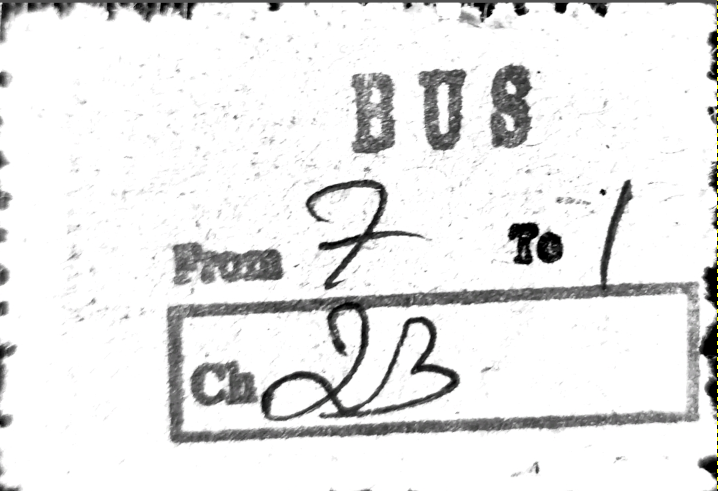 BUS
From 7 To 1
Ch 23